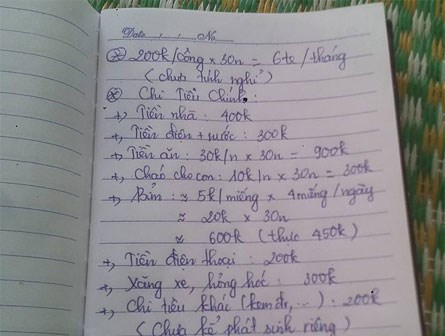 Date . . . No
⊗ 200k/công x 30n = 6tr/tháng
(chưa tính nghỉ)
⊗ Chi Tiêu Chính:
+, Tiền nhà: 400k
+, Tiền điện + nước: 300k
+, Tiền ăn: 30k/n x 30n = 900k
+, Cháo cho con: 10k/n x 30n = 300k
+, Bỉm: ≈ 5k/miếng x 4miếng/ngày
≈ 20k x 30n
≈ 600k (thực 450k)
+, Tiền điện thoại: 200k
+, Xăng xe, hỏng hóc: 300k
+, Chi tiêu khác (kem đr, ...): 200k
(Chưa kể phát sinh riêng)